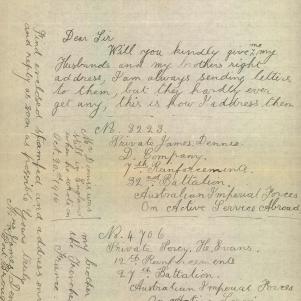 Dear Sir
Will you kindly give me my
Husbands and my brothers right
address, I am always sending letters
to them, but they hardly ever
get any, this is how I address them
No. 3223.
Private James Dennis
D. Company.
7th Reinforcements.
32nd Battalion
Australian Imperial Forces
On Active Service Abroad
No. 4706
Private Percy. H. Evans.
12th Reinforcements
27th Battalion.
Australian Imperial Forces
Find enclosed stamped and address env
and reply as soon as possible Yours truly
my brother
France